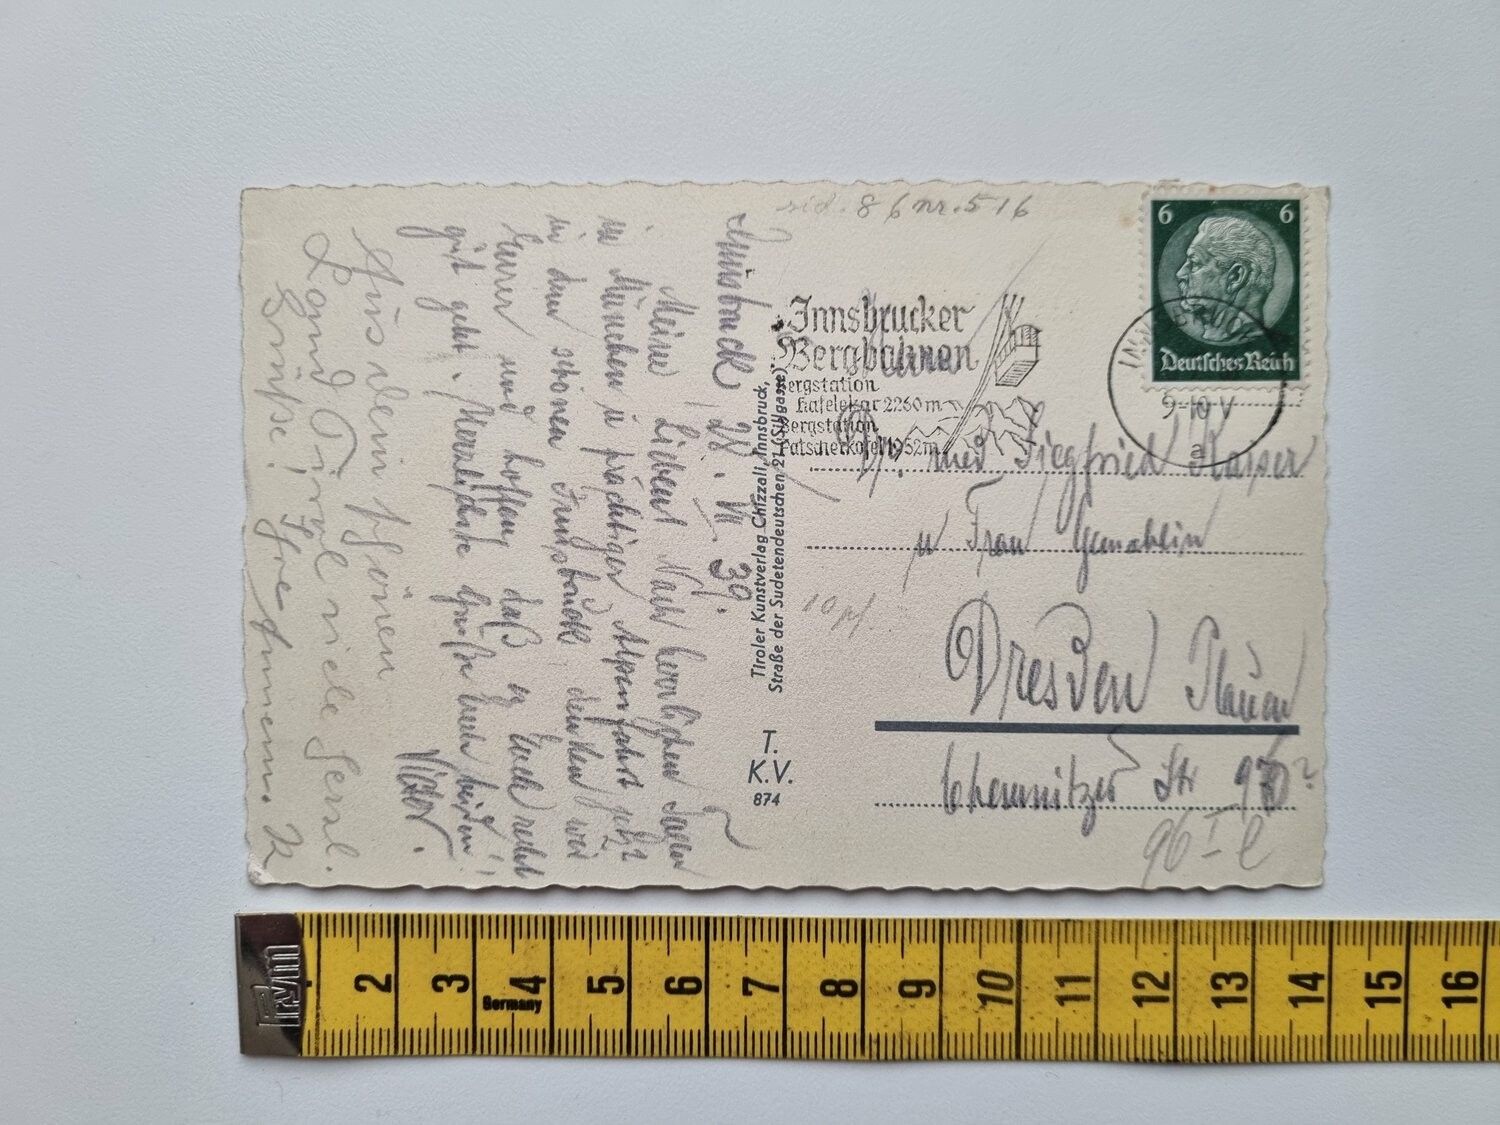 Innsbruck 28. VII. 39.
Meine Lieben! Nach herrlichen Tagen
in München u prächtiger Alpenfahrt jetzt
in dem schönen Innsbruck denken wir
Eurer und hoffen, daß es Euch recht
gut geht. Herzlichste Grüße Euch beiden!
Viktor.
Aus dem schönen
Land Tirol viele herzl.
Grüße! Ihre
sid. 86 nr. 516
6 6
Deutsches Reich
INNSBRUCK
9-10 V
a
Innsbrucker
Bergbahnen
Bergstation
Hafelekar 2260 m
Bergstation
Patscherkofel 1952 m
Dr. med Siegfried Kayser
u Frau Gemahlin
10 pf.
Dresden Plauen
Chemnitzer Str
96 I
Tiroler Kunstverlag Chizzali, Innsbruck,
Straße der Sudetendeutschen 21 (Sillgasse)
T.
K.V.
874
Prym
2 3 4 5 6 7 8 9 10 11 12 13 14 15 16
Germany